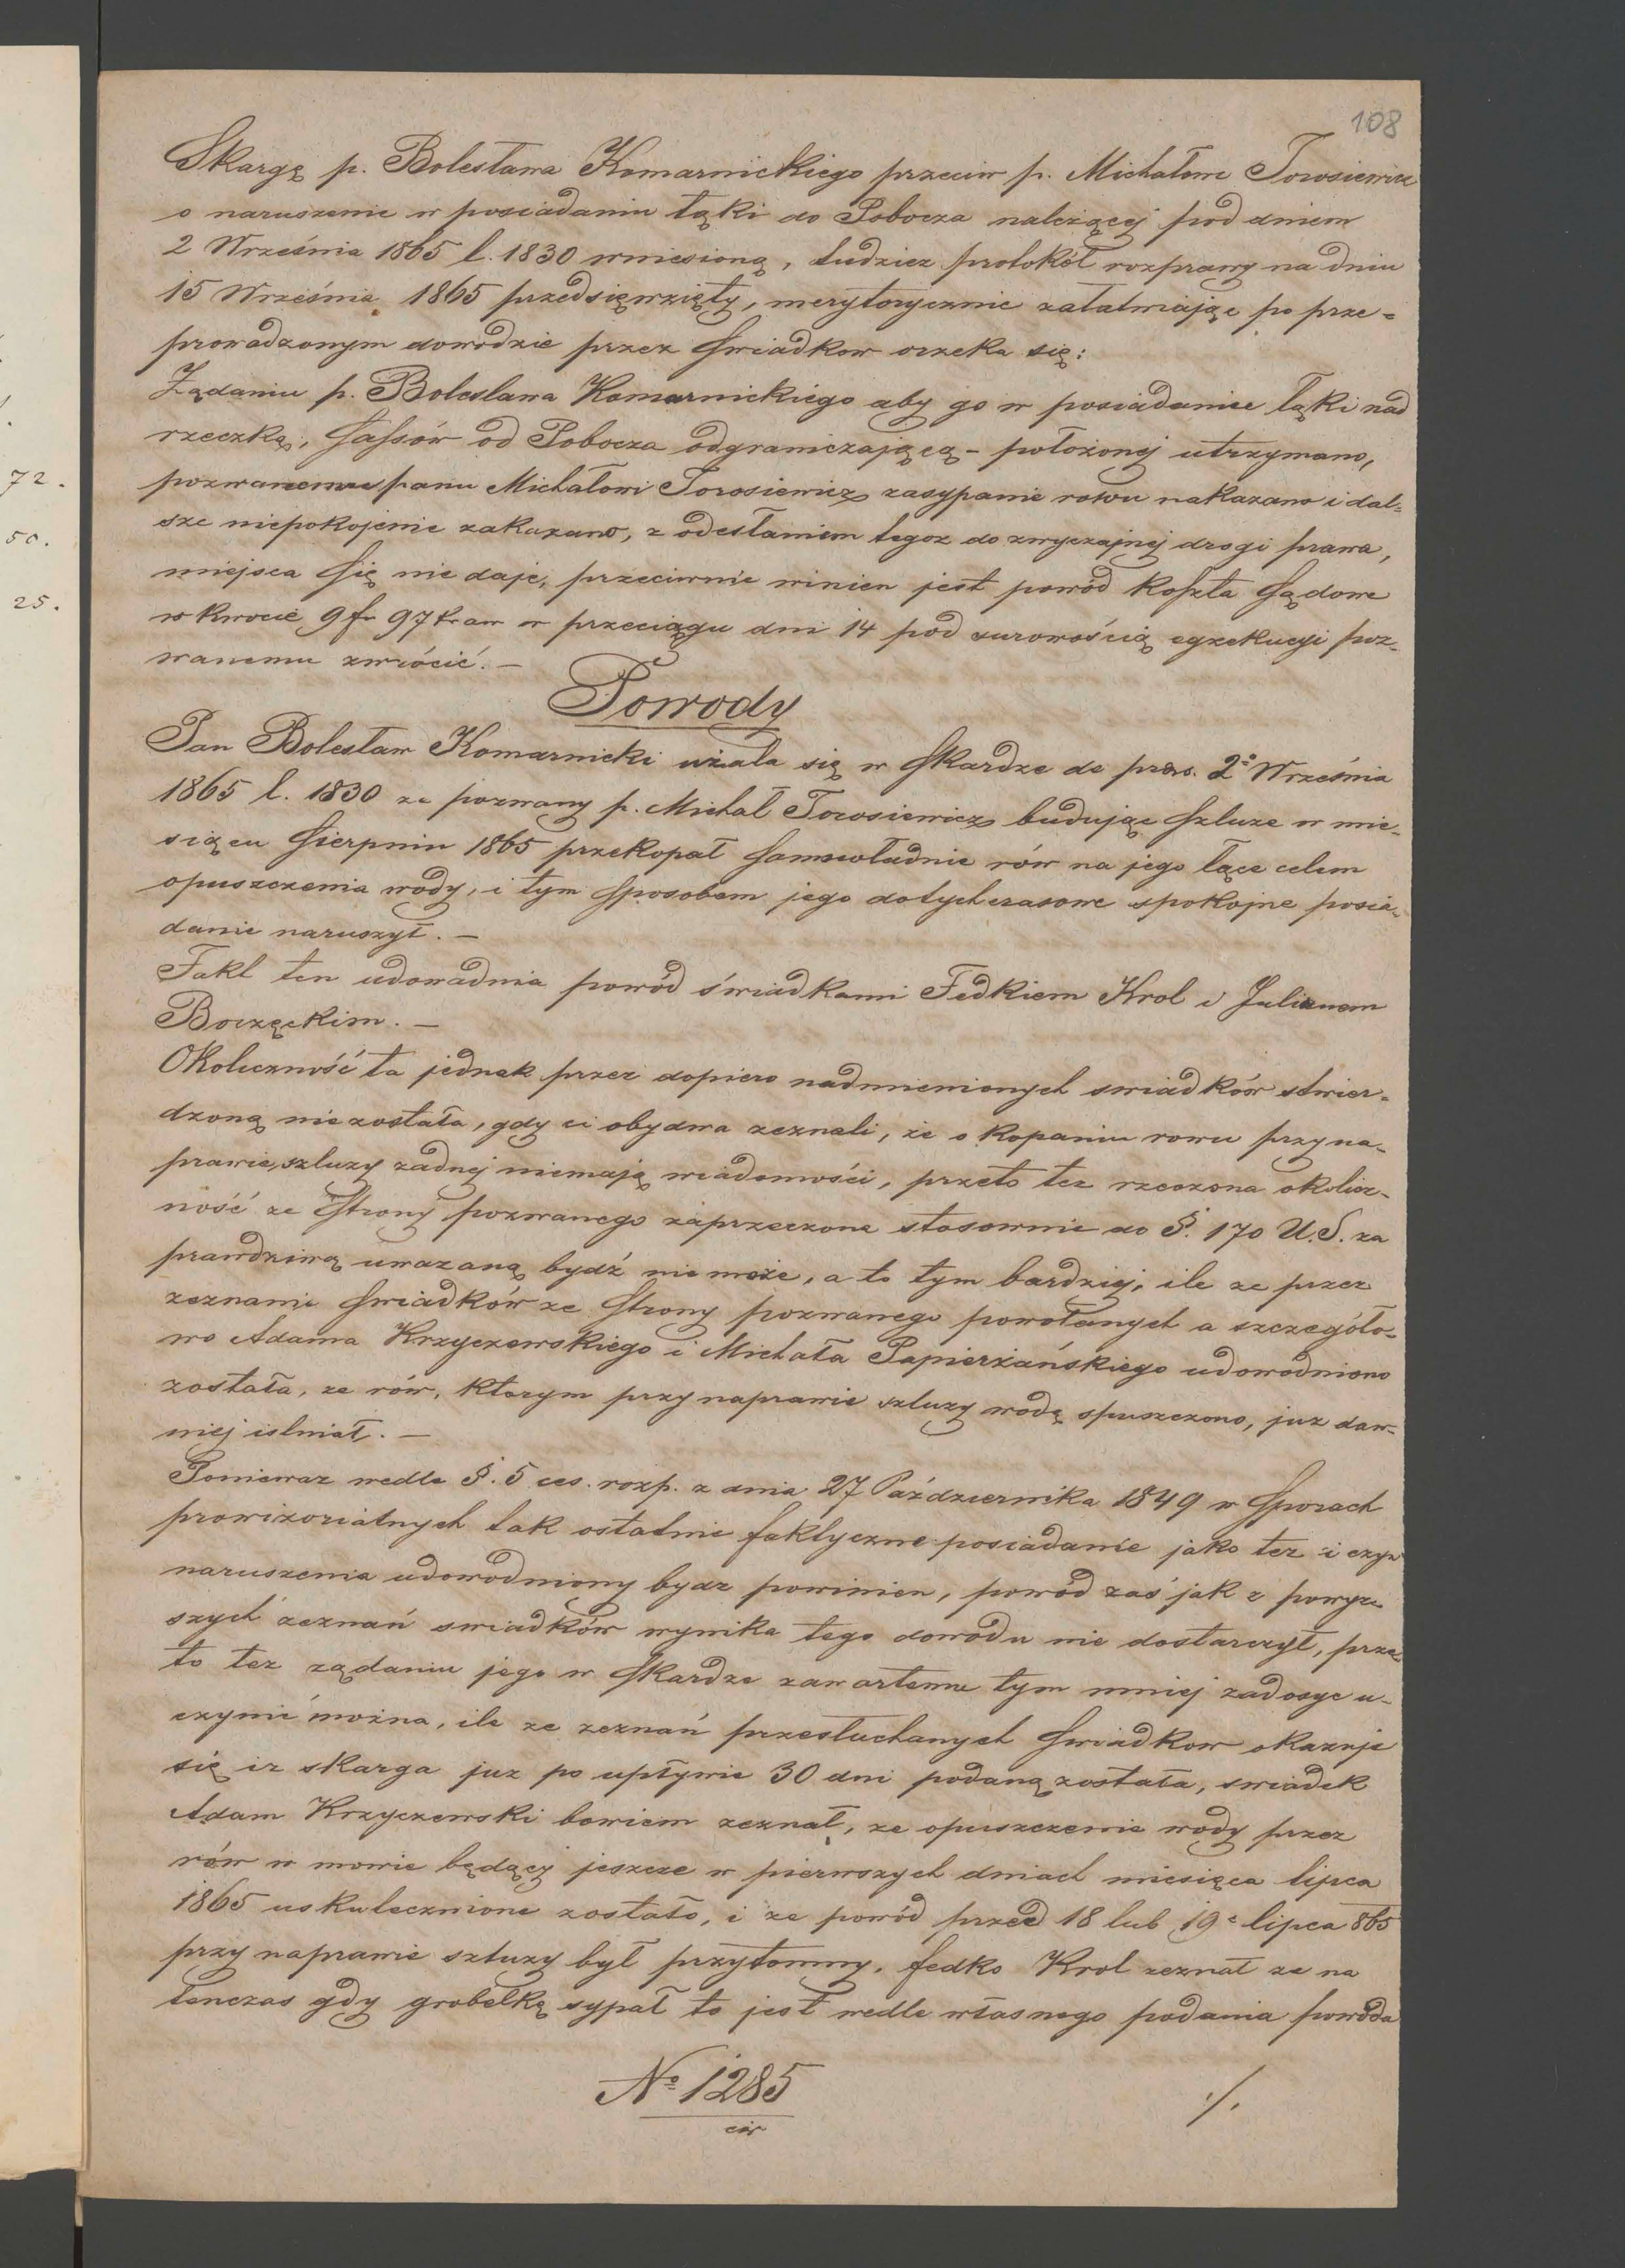 108
Skargę p. Bolesława Komarnickiego przeciw p. Michałowi Torosiewicz
o naruszenie w posiadaniu łąki do Pobocza należącej pod dniem
2 Września 1865 l. 1830 wniesioną, tudziez protokół rozprawy na dniu
15 Września 1865 przedsięwzięty, merytorycznie załatwiając po prze=
prowadzonym dowodzie przez Swiadkow orzeka się:
Żądaniu p. Boleslawa Komarnickiego aby go w posiadaniu łąki nad
rzeczką, Sassów od Pobocza odgraniczającą - położonej utrzymano,
pozwanemu panu Michałowi Torosiewicz zasypanie rowu nakazano i dal=
sze niepokojenie zakazano, z odesłaniem tegoz do zwyczajnej drogi prawa,
miejsca Się nie daje, przeciwnie winien jest powód koszta Sądowe
w kwocie 9 fr 97 kr aw w przeciągu dni 14 pod surowością egzekucyi poz-
wanemu zwrócić. —
Powody
Pan Bolesław Komarnicki użala się w Skardze de praes. 2º Września
1865 l. 1830 ze pozwany p. Michał Torosiewicz budując Szluze w mie-
siącu Sierpniu 1865 przekopał Samowładnie rów na jego łące celem
opuszczenia wody, i tym Sposobem jego dotychczasowe spokojne posia-
danie naruszył. —
Fakt ten udowadnia powód świadkami Fedkiem Krol i Julianem
Borzęckim. —
Okoliczność ta jednak przez dopiero nadmienionych swiadków stwier=
dzoną nie została, gdy ci obydwa zeznali, że o kopaniu rowu przy na-
prawie szluzy zadnej niemają wiadomości, przeto tez rzeczona okolicz-
ność ze Strony pozwanego zaprzeczona stosownie do §. 170 U.S. za
prawdziwą uwazaną bydź nie może, a to tym bardziej, ile ze przez
zeznanie Swiadków ze Strony pozwanego powołanych a szczegóło-
wo Adama Krzyczewskiego i Michała Papierzańskiego udowodniono
została, ze rów, ktorym przy naprawie szluzy wodę spuszczono, juz daw-
niej istniał. —
Poniewaz wedle §. 5 ces. rozp. z dnia 27 Października 1849 w Sporach
prowizorialnych tak ostatnie faktyczne posiadanie jako tez i czyn
naruszenia udowodniony bydz powinien, powód zaś jak z powyz-
szych zeznań swiadków wynika tego dowodu nie dostarczył, prze-
to tez ządaniu jego w Skardze zawartemu tym mniej zadosyc u-
czynić można, ile ze zeznań przesłuchanych Swiadkow okazuje
się iz skarga juz po upływie 30 dni podaną została, swiadek
Adam Krzyczewski bowiem zeznał, ze opuszczenie wody przez
rów w mowie będący jeszcze w pierwszych dniach miesiąca lipca
1865 uskutecznione zostało, i ze powód przed 18 lub 19º lipca 865
przy naprawie szluzy był przytomny. Fedko Krol zeznał ze na
tenczas gdy grobelkę sypał to jest wedle własnego podania powoda
Nº 1285
civ
./.
72.
50.
25.